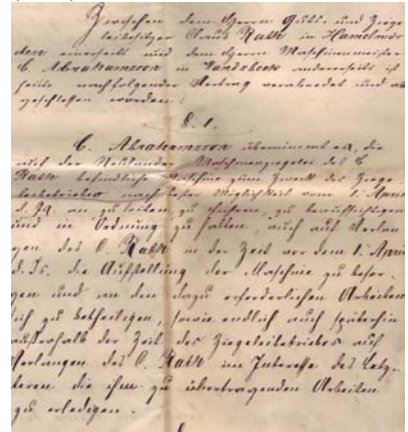 Zwischen dem Herrn Guts- und Ziege-
leibesitzer Claus Rath in Hamelwör-
den einerseits und dem Herrn Maschinenmeister
C. Abrahamsson in Wandsbeck andererseits ist
heute nachfolgender Vertrag verabredet und ab
geschlossen worden:
§. 1.
C. Abrahamsson übernimmt es, die
auf der Neßlander Maschinenziegelei des C.
Rath befindliche Maschine zum Zweck des Ziege-
leibetriebes nach bester Möglichkeit vom 1. April
d. Js. an zu leiten, zu führen, zu beaufsichtigen
und in Ordnung zu halten, auch auf Verlan
gen des C. Rath in der Zeit vor dem 1. April
d. Js. die Aufstellung der Maschine zu besor-
gen und an den dazu erforderlichen Arbeiten
sich zu betheiligen, sowie endlich auch späterhin
außerhalb der Zeit des Ziegeleibetriebes auf
Verlangen des C. Rath im Interesse des Letz-
teren die ihm zu übertragenden Arbeiten
zu erledigen.